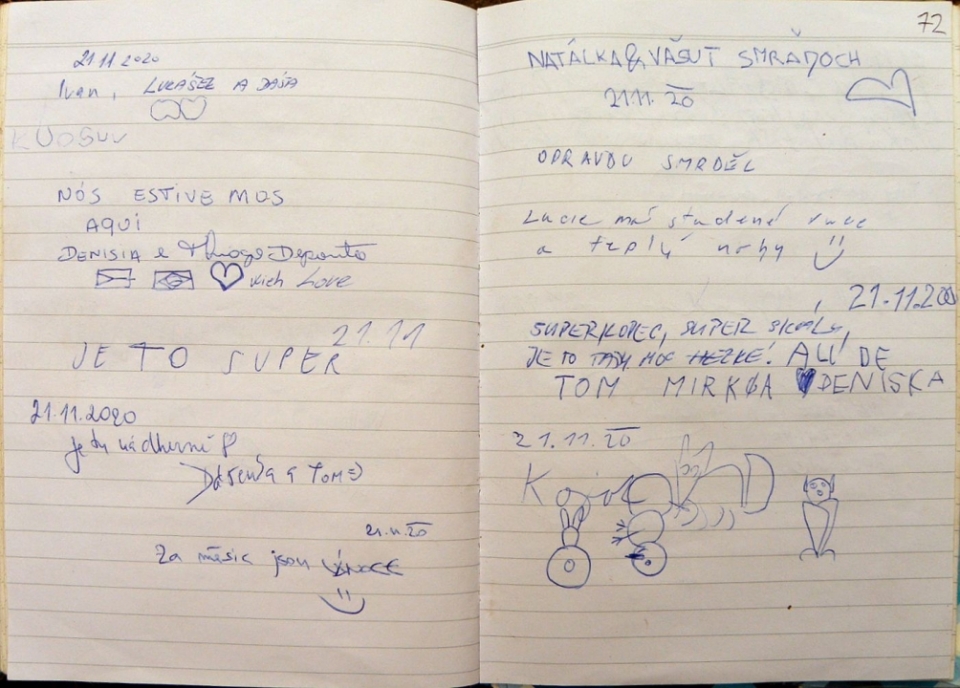 21.11.2020
Ivan, LUKÁŠEK A DÁŠA
NÓS ESTIVEMOS
AQUI
DENISIA e Thiago Deponto
with Love
21.11
JE TO SUPER
21.11.2020
Je tu nádherně
Dášeňa a TOM
21.11.20
Za měsíc jsou VÁNOCE
72
NATÁLKA & VAŠUT SMRAĎOCH
21.11.20
OPRAVDU SMRDĚL
Lucie má studené ruce
a teplý nohy
21.11.20
SUPERKOPEC, SUPER SKÁLY,
JE TO TADY MOC HEZKÉ!
TOM MIRKA DENISKA
21.11.20
Kojot